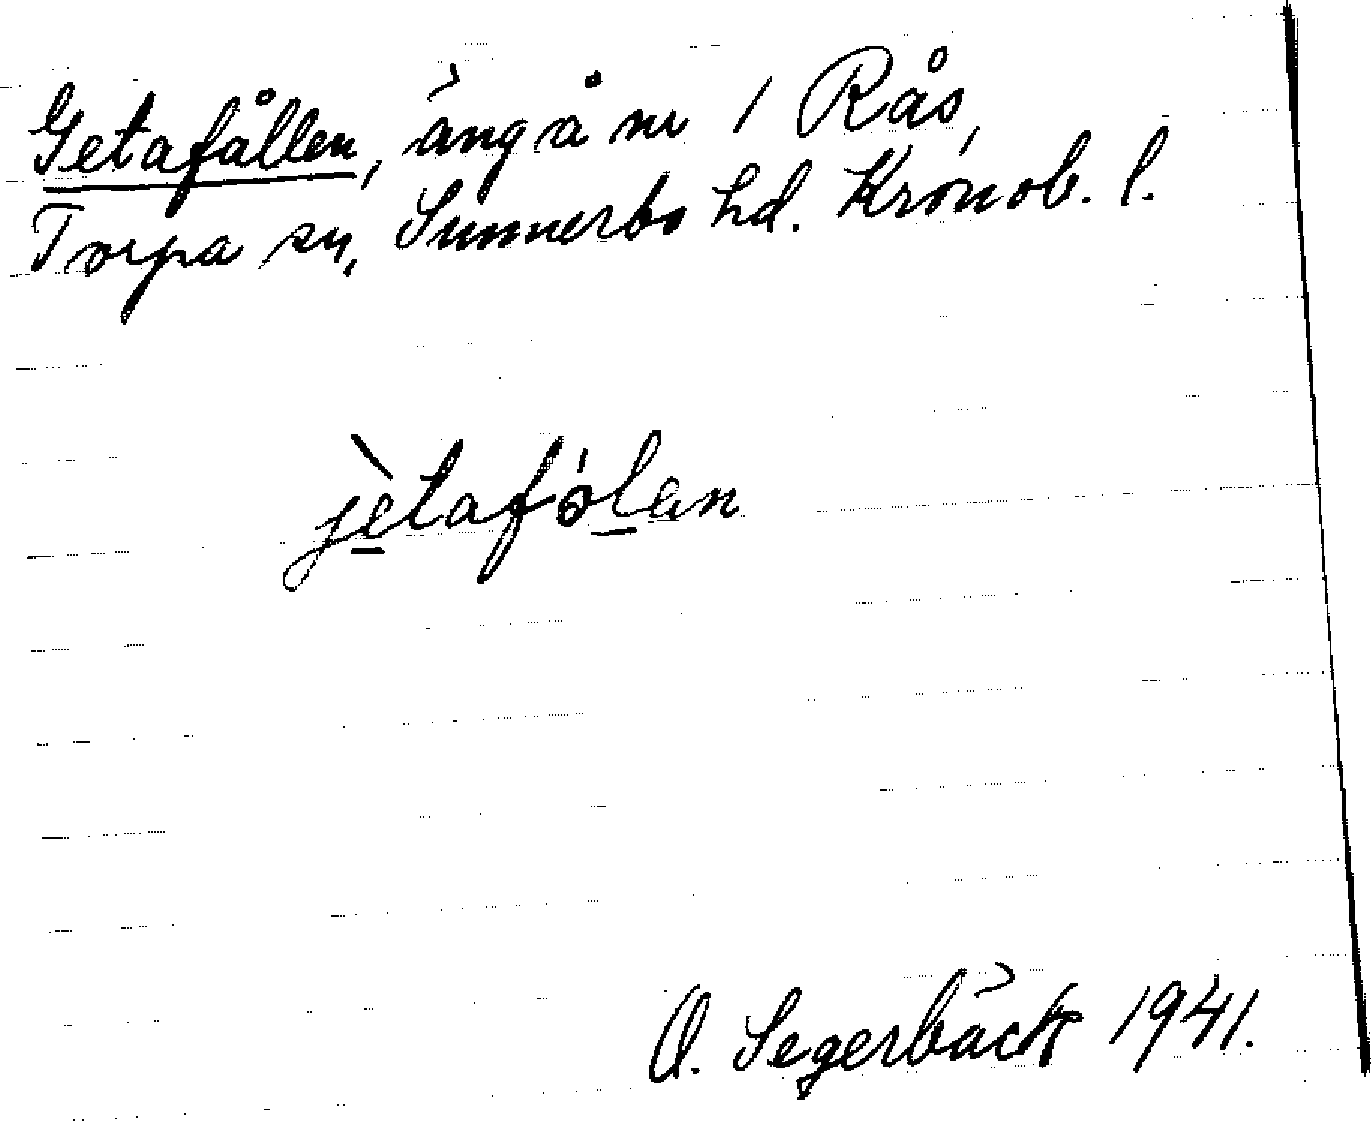 Getafållen, äng å nr 1 Rås,
Torpa sn, Sunnerbo hd. Kronob. l.
jètafó̀lan
O. Segerbäck 1941.